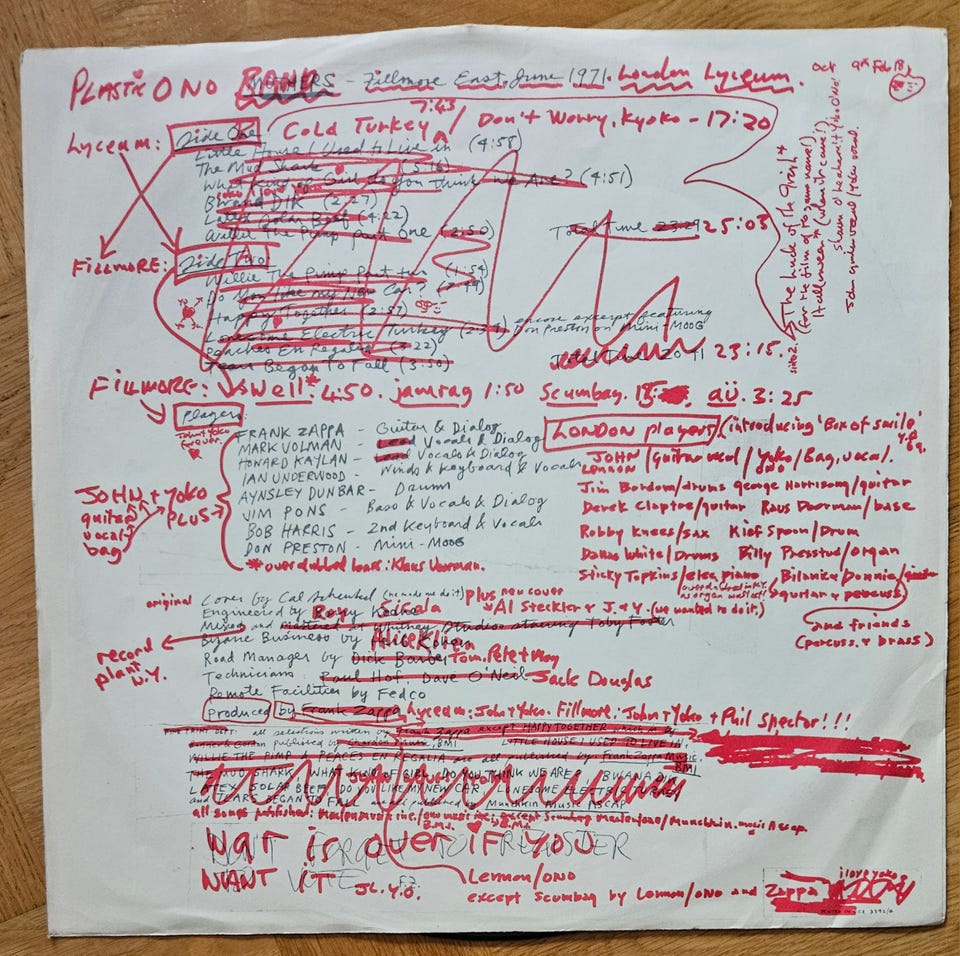 PLASTIC ONO BAND MOTHERS - Fillmore East, June 1971. London Lyceum.
Lyceum: Side One Cold Turkey 7:43 / Don't Worry, Kyoko - 17:20
Little House I Used to Live in (4:58)
The Mud Shark (5:16)
What Kind of Girl do you think we Are? (4:51)
Bwana Dik (2:27)
Latex Solar Beef (4:22)
Willie The Pimp part One (2:50)
Total time 23:29 25:03
FILLMORE: Side Two
Willie The Pimp Part two (1:54)
Do You like my New Car?
Happy Together (2:57)
Lonesome Electric Turkey encore excerpt featuring
Don Preston on Mini-MOOG
Peaches En Regalia (3:22)
Tears Began To Fall (3:30)
Total Time 23:15.
FILLMORE: swell* 4:50. jamrag 1:50 Scumbag. aü. 3:25
Players
John + Yoko
forever.
FRANK ZAPPA - Guitar & Dialog
MARK VOLMAN - Lead Vocals & Dialog
HOWARD KAYLAN - Lead Vocals & Dialog
IAN UNDERWOOD - Winds & Keyboard & Vocals
AYNSLEY DUNBAR - Drums
JIM PONS - Bass & Vocals & Dialog
BOB HARRIS - 2nd Keyboard & Vocals
DON PRESTON - Mini-MOOG
*overdubbed bass: Klaus Voorman.
JOHN + YOKO
guitar
vocal
bag
PLUS
LONDON players (introducing 'Box of smile'
JOHN LENNON / guitar vocal / Yoko ONO / Bag, vocal.
Jim Bordom/drums george Harrisong/guitar
Derek Clapton/guitar Raus Doorman/base
Robby Knees/sax Kief Spoon/Drum
Dallas White/Drums Billy Presstud/organ
Sticky Topkins/elec piano Bilanie & Donnie/
and friends
(percuss. & brass)
original Cover by Cal Schenkel (he made me do it) plus new cover
Al Steckler & J. & Y. (we wanted to do it)
Engineered by Roy Cicala
Mixed and Mastered at Whitney Studios starring Toby Foster
Bizarre Business by Allen Klein
record plant N.Y.
Road Manager by Dick Barber Tom. Pete + May
Technicians: Paul Hof, Dave O'Neil Jack Douglas
Remote Facilities by Fedco
Produced by Frank Zappa Lyceum: John + Yoko. Fillmore: John + Yoko + Phil Spector!!!
all selections written by Frank Zappa except HAPPY TOGETHER which is by
LITTLE HOUSE I USED TO LIVE IN,
WILLIE THE PIMP & PEACHES EN REGALIA are all published by Frank Zappa Music, BMI
THE MUD SHARK, WHAT KIND OF GIRL DO YOU THINK WE ARE, BWANA DIK
LATEX SOLAR BEEF, DO YOU LIKE MY NEW CAR, LONESOME ELECTRIC TURKEY
and TEARS BEGAN TO FALL are published by Munchkin Music ASCAP
all songs published: Maclen music inc/ono music inc, except Scumbag Maclen/ono/Munchkin music Ascap.
B.M.I. B.M.I.
War is over IF YOU
WANT IT JL. Y.O.
DON'T FORGET TO REGISTER
TO VOTE
Lennon/ONO
except Scumbag by Lennon/ONO and Zappa
i love yoko
side 2. The Luck of the Irish
(for the film of the same name!)
Halloween (when it came!)
John guitar vocal / Yoko vocal.